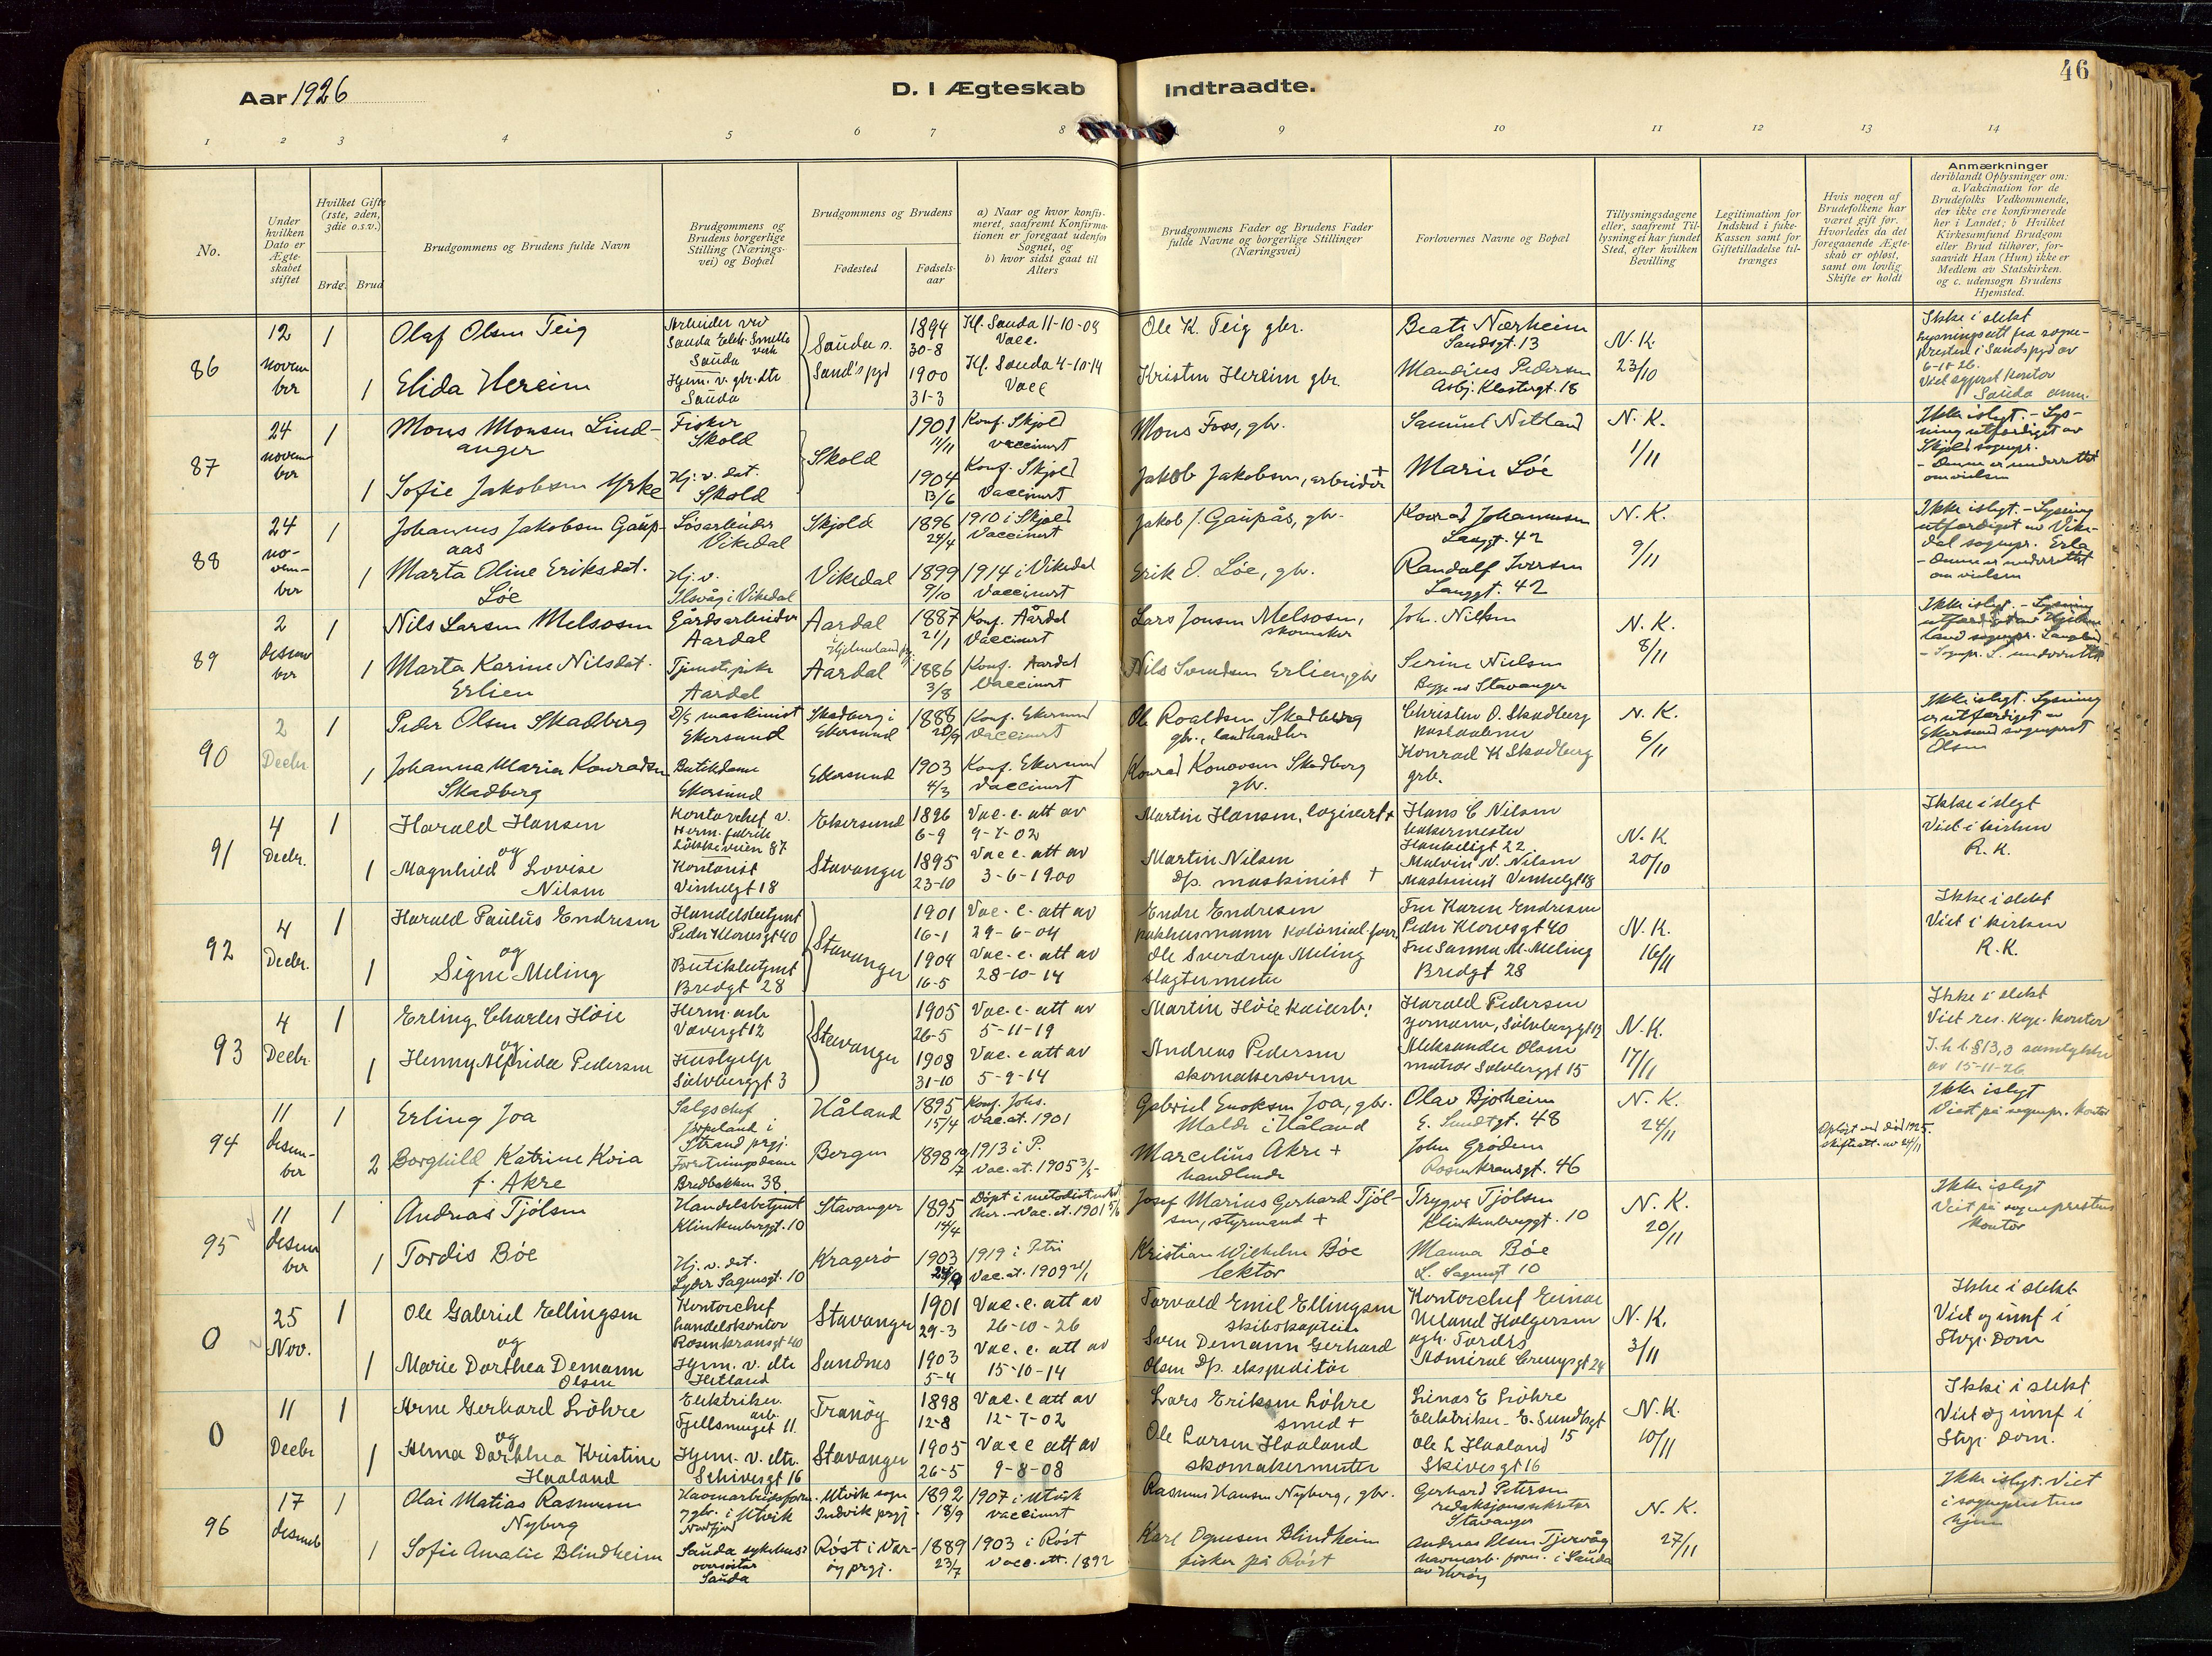 46
Aar 1926
D. I Ægteskab Indtraadte.
1 2 3 4 5 6 7 8 9 10 11 12 13 14
No.
Under hvilken Dato er Ægteskabet stiftet
Hvilket Gifte (1ste, 2den, 3die o.s.v.)
Brdg. Brud
Brudgommens og Brudens fulde Navn
Brudgommens og Brudens borgerlige Stilling (Næringsvei) og Bopæl
Brudgommens og Brudens
Fødested
Fødselsaar
a) Naar og hvor konfirmeret, saafremt Konfirmationen er foregaat udenfor Sognet, og
b) hvor sidst gaat til Alters
Brudgommens Fader og Brudens Fader fulde Navne og borgerlige Stillinger (Næringsvei)
Forlovernes Navne og Bopæl
Tillysningsdagene eller, saafremt Tillysning ei har fundet Sted, efter hvilken Bevilling
Legitimation for Indskud i fuke-Kassen samt for Giftetilladelse tiltrænges
Hvis nogen af Brudefolkene har været gift før. Hvorledes da det foregaaende Ægteskab er opløst, samt om lovlig Skifte er holdt
Anmærkninger
deriblandt Oplysninger om: a. Vakcination for de Brudefolks Vedkommende, der ikke ere konfirmerede her i Landet; b Hvilket Kirkesamfund Brudgom eller Brud tilhører, forsaavidt Han (Hun) ikke er Medlem av Statskirken. og c. udensogn Brudens Hjemsted.
86
12 novem ber
1
Olaf Olsen Teig
Arbeider ved Sauda Elek. Smelte verk Sauda
Sauda s.
1894 30-8
Kf. Sauda 11-10-08 Vacc.
Ole K. Teig gbr.
Beate Nærheim Sandsgt. 13
N. K. 23/10
1
Elida Hereim
Hjem. v. gbr. dtr Sauda
Sand's pgd
1900 31-3
Kf. Sauda 4-10-14 Vacc
Kristen Hereim gbr.
Mandius Pedersen Asbj. Klostergt. 18
Ikke i slekt
87
24 novem ber
1
Mons Monsen Lindanger
Fisker Skold
Skold
1901 11/11
Konf. Skjold vaccinert
Mons Foss, gbr.
Samuel Netland
N. K. 1/11
1
Sofie Jakobsen Yrke
Hj. v. dat. Skold
1904 13/6
Konf. Skjold Vaccinert
Jakob Jakobsen, arbeider +
Marie Löe
Ikke i slegt. - Lysning utfærdiget av Skjold sognepr. - Denne er underrettet om vielsen
88
24 november
1
Johannes Jakobsen Gaupaas
Lösarbeider Vikedal
Skjold
1896 24/4
1910 i Skjold Vaccinert
Jakob J. Gaupås, gbr.
Konrad Johannesen Langgt. 42
N. K. 9/11
1
Marta Oline Eriksdat. Löe
Hj. v. Ilsvåg i Vikedal
Vikedal
1899 9/10
1914 i Vikedal Vaccinert
Erik O. Löe, gbr.
Randolf Iversen Langgt. 42
Ikke i slegt. - Lysning utfærdiget av Vikedal sognepr. Erla - Denne er underrettet om vielsen
89
2 desem ber
1
Nils Larsen Melsosen
Gårdsarbeider Aardal
Aardal i Hjelmeland pgj.
1887 21/1
Konf. Aårdal Vaccinert
Lars Jonsen Melsosen, skomaker
Joh. Nilsen
N. K. 8/11
1
Marta Karine Nilsdat. Erlien
Tjenest. pike Aardal
Aardal
1886 3/8
Konf. Aardal Vaccinert
Nils Svendsen Erlien, gbr
Serine Nielsen Begge av Stavanger
90
2 Decbr.
1
Peder Olsen Skadberg
D/S maskinist Ekersund
Skadberg i Ekersund
1888 20/9
Konf. Ekersund Vaccinert
Ole Roaldsen Skadberg gbr., landhandler
Christen O. Skadberg
N. K. 6/11
1
Johanna Maria Konradsen Skadberg
Butikdame Ekersund
Ekersund
1903 4/3
Konf. Ekersund Vaccinert
Konrad Skadberg gbr.
Konrad K Skadberg grb.
Ikke i slegt. Lysning er utfærdiget av Ekersund sogneprest Olsen
91
4 Decbr.
1
Harald Hansen
og
Kontorchef v. Herm. fabrik Lökkeveien 87
Ekersund
1896 6-9
Vac. e. att av 9-7-02
Martin Hansen, logivert +
Hans C Nilsen bakermester Haukeligt 22
N. K. 20/10
1
Magnhild Lovise Nilsen
Kontorist Vinkelgt 18
Stavanger
1895 23-10
Vac e. att av 3-6-1900
Martin Nilsen d/s. maskinist +
Malvin N. Nilsen Maskinist Vinkelgt 18
Ikke i slegt Viet i kirken R. K.
92
4 Decbr.
1
Harald Paulus Endresen
og
Handelsbetjent Peder Klowsgt 40
Stavanger
1901 16-1
Vac. e. att av 29-6-04
Endre Endresen pakhusmann kolonial forr.
Fru Karen Endresen Peder Klowsgt 40
N. K. 16/11
1
Signe Meling
Butikbetjent Bredgt 28
1904 16-5
Vac. e. att av 28-10-14
Ole Sverdrup Meling slagtermester
Fru Sanna M. Meling Bredgt 28
Ikke i slekt Viet i kirken R. K.
93
4 Decbr.
1
Erling Charles Höie
og
Herm. arb Vævergt 12
Stavanger
1905 26-5
Vac. e. att av 5-11-19
Martin Höie kaiarb.
Harald Pedersen
N. K. 17/11
1
Henny Alfrida Pedersen
Hushjelp Sölvberggt 3
1908 31-10
Vac. e att av 5-9-14
Andreas Pedersen skomakersvenn
Aleksander Olsen matros Sölvberggt 15
Ikke i slekt Viet res. kap. kontor I. h. t. § 13,3 samtykke av 15-11-26
94
11 desember
1
Erling Joa
Salgschef Jörpeland i Strand prgj.
Håland
1895 15/4
Konf. Johs. Vac. at. 1901
Gabriel Enoksen Joa, gbr. Malde i Håland
Olav Bjorheim E. Sundtgt. 48
N. K. 24/11
Oplöst ved död 1925. skifteatt. av 24/11
2
Borghild Katrine Kvia f. Akre
Forretningsdame Bredbakken 38
Bergen
1898 19/7
1913 i P. Vac. at. 1905 3/5
Marcelius Akre + handlende
John Grödem Rosenkransgt. 46
Ikke i slegt Viet på sognepr. kontor
95
11 desem ber
1
Andreas Tjölsen
Handelsbetjent Klinkenberggt. 10
Stavanger
1895 14/4
Döpt i metodistmenigh. - Vac. at. 1901 5/6
Josef Marius Gerhard Tjölsen, styrmand +
Trygve Tjölsen Klinkenberggt. 10
N. K. 20/11
1
Tordis Böe
Hj. v. dat. Lyder Sagensgt. 10
Kragerö
1903
1919 i Petri Vac. at. 1909 21/1
Kristian Wilhelm Böe lektor
Manna Böe L. Sagensgt 10
Ikke i slegt Viet på sogneprestens kontor
0
25 Nov.
1
Ole Gabriel Ellingsen
og
Kontorchef handelskontor Rosenkransgt 40
Stavanger
1901 29-3
Vac. e. att av 26-10-26
Torvald Emil Ellingsen skibskaptein
Kontorchef Einar Ueland Holgersen
N. K. 3/11
1
Marie Dorthea Demann Olsen
Hjem. v. dtr Hetland
Sandnes
1903 5-4
Vac. e. att av 15-10-14
Sven Demann Gerhard Olsen d/s. ekspeditör
ugh. Tordis Admiral Cruysgt 24
Ikke i slekt Viet og innf i Stvgr. Dom
0
11 Decbr
1
Arne Gerhard Löhre
og
Elektriker arb. Fjellsmuget 11.
Tranöy
1898 12-8
Vac. e att av 12-7-02
Lars Eriksen Löhre smed +
Linas E Löhre Elektriker - E. Sundtsgt 15
N. K. 10/11
1
Alma Dorthea Kristine Haaland
Hjem. v. dtr. Schivesgt 16
Stavanger
1905 26-5
Vac e att av 9-8-08
Ole Larsen Haaland skomakermester
Ole L Haaland Skivesgt 16
Ikke i slekt Viet og innf i Stvgr. Dom.
96
17 desemb
1
Olai Matias Rasmussen Nyberg
Havnearbeidsform. og gbr. i Utvik Nordfjord
Utvik sogn Indvik prgj.
1892 18/9
1907 i Utvik vaccinert
Rasmus Hansen Nyberg, gbr.
Gerhard Petersen redaksjonssekretær Stavanger
N. K. 27/11
1
Sofie Amalie Blindheim
Sauda sykehus oversöster Sauda
Röst i Væröy prgj.
1889 23/7
1903 i Röst Vacc. att. 1892
Karl Blindheim fisker på Röst
Andreas Olsen Tjervåg havnearb. form. i Sauda
Ikke i slegt. Viet i sogneprestens hjem